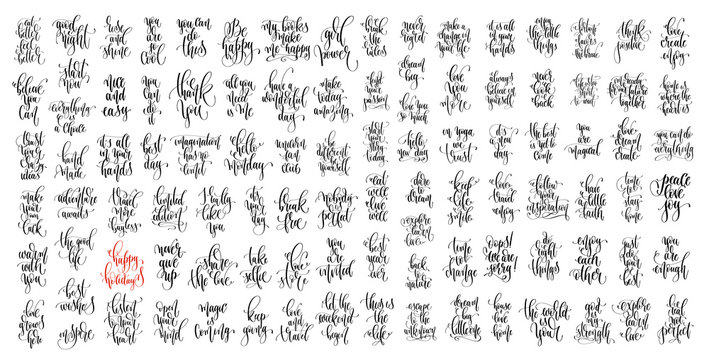 eat better feel better
good night
rise and shine
you are so cool
you can do this
Be happy
my books make me happy
girl power
break the rules
never look back
make a change in your life
it is all in your hands
enjoy the little things
think positive
love create enjoy
believe you can
start now
nice and easy
you can do it
thank you
all you need is me
have a wonderful day
make today amazing
find your passion
dream big
love you more
always believe in yourself
never look back
home is where heart is
everything is a choice
love you so much
trust your crazy ideas
hand made
it's all in your hands
best day
imagination has no limit
hello monday
unicorn fan club
be different be yourself
hello you
in yoga we trust
it's your day
the best is yet to come
you are magical
love dream create
you can do everything
make your own luck
adventure awaits
travel more worry less
limited edition
I really like you
it's your day
break free
nobody is perfect
eat well live well
dare to dream
keep life simple
love travel enjoy
follow your inspiration
have a little faith
time to stay home
peace love joy
warm with you
the good life
happy holidays
never give up
share the love
take selfie
love store
you are invited
best year ever
explore to learn
love nature
time to change
oops! we are sorry!
do right things
enjoy each other
just do your best
you are enough
love grows here
best wishes
inspire
listen to your heart
open your mind
magic is coming
keep going
love and travel
let the weekend begin
this is the life
escape the ordinary
dream big little one
house + love = home
the world is your
god is my strength
explore dream live
be real not perfect